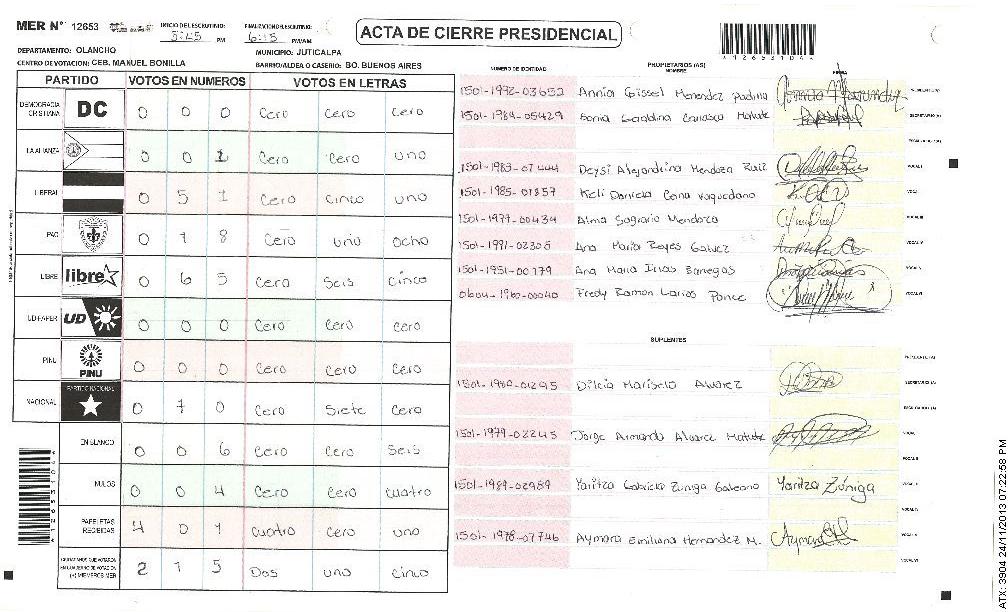 MER N° 12653 INICIO DEL ESCRUTINIO: FINALIZACION DEL ESCRUTINIO:
PM 6:15 PM/AM
ACTA DE CIERRE PRESIDENCIAL
A126531044
DEPARTAMENTO: OLANCHO MUNICIPIO: JUTICALPA
CENTRO DE VOTACION: CEB. MANUEL BONILLA BARRIO/ALDEA O CASERIO: BO. BUENOS AIRES
PARTIDO VOTOS EN NUMEROS VOTOS EN LETRAS
DEMOCRACIA CRISTIANA DC 0 0 0 Cero Cero Cero
LA ALIANZA 0 0 1 Cero Cero uno
LIBERAL 0 5 1 Cero cinco uno
PAC 0 1 8 Cero uno ocho
LIBRE libre 0 6 5 Cero Seis cinco
UD-FAPER UD 0 0 0 Cero Cero cero
PINU PINU 0 0 0 Cero Cero Cero
NACIONAL PARTIDO NACIONAL 0 7 0 Cero Siete Cero
EN BLANCO 0 0 6 Cero Cero Seis
NULOS 0 0 4 Cero Cero cuatro
PAPELETAS RECIBIDAS 4 0 1 Cuatro Cero uno
CIUDADANOS QUE VOTARON EN CUADERNO DE VOTACION (+) MIEMBROS MER 2 1 5 Dos uno cinco
NUMERO DE IDENTIDAD PROPIETARIOS (AS) NOMBRE FIRMA
1501-1992-03653 Annia Gissel Menendez Padilla PRESIDENTE (A)
1501-1984-05429 Sonia Geraldina Carrasco Matute SECRETARIO (A)
ESCRUTADOR (A)
1501-1983-07444 Deysi Alejandrina Mendoza Ruiz VOCAL I
1501-1985-01857 Keli Daniela Cona Vaquedano
1501-1979-00434 Alma Sagrario Mendoza VOCAL III
1501-1991-02308 Ana Maria Reyes Galvez
1501-1951-00179 Ana Maria Banegas
1960-00040 Fredy Ramon Larios Ponce
SUPLENTES
PRESIDENTE (A)
1501-1989-01295 Dilcia Marisela Alvarez SECRETARIO (A)
ESCRUTADOR (A)
1501-1979-02245 Jorge Armando Alvarez Matute
1501-1989-02989 Yaritza Gabriela Zuniga Galeano Yaritza Zúniga
1501-1978-07746 Aymara Emiliana Hernandez M.
A126531044
ATX: 3904 24/11/2013 07:22:58 PM